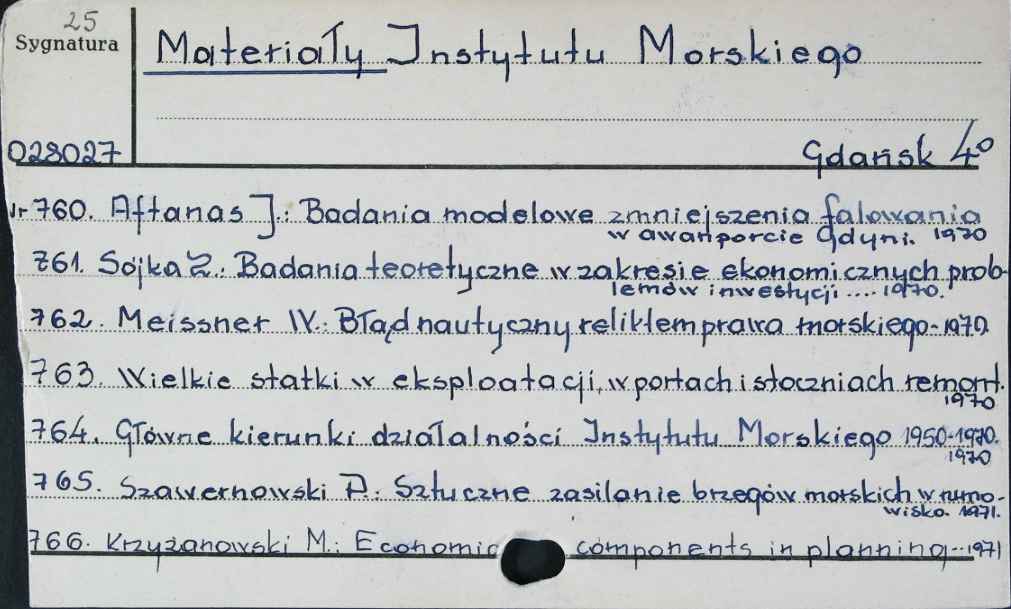 25
Sygnatura
Materiały Instytutu Morskiego
028027
Gdańsk 4°
Nr 760. Aftanas J.: Badania modelowe zmniejszenia falowania
w awanporcie Gdyni. 1970
761. Sójka Z.: Badania teoretyczne w zakresie ekonomicznych prob-
lemów inwestycji .... 1970.
762. Meissner W.: Błąd nautyczny reliktem prawa morskiego - 1970
763. Wielkie statki w eksploatacji, w portach i stoczniach remont.
1970
764. Główne kierunki działalności Instytutu Morskiego 1950-1970.
1970
765. Szawernowski P. Sztuczne zasilanie brzegów morskich w rumo-
wisko. 1971.
766. Krzyżanowski M.: Economic components in planning -- 1971